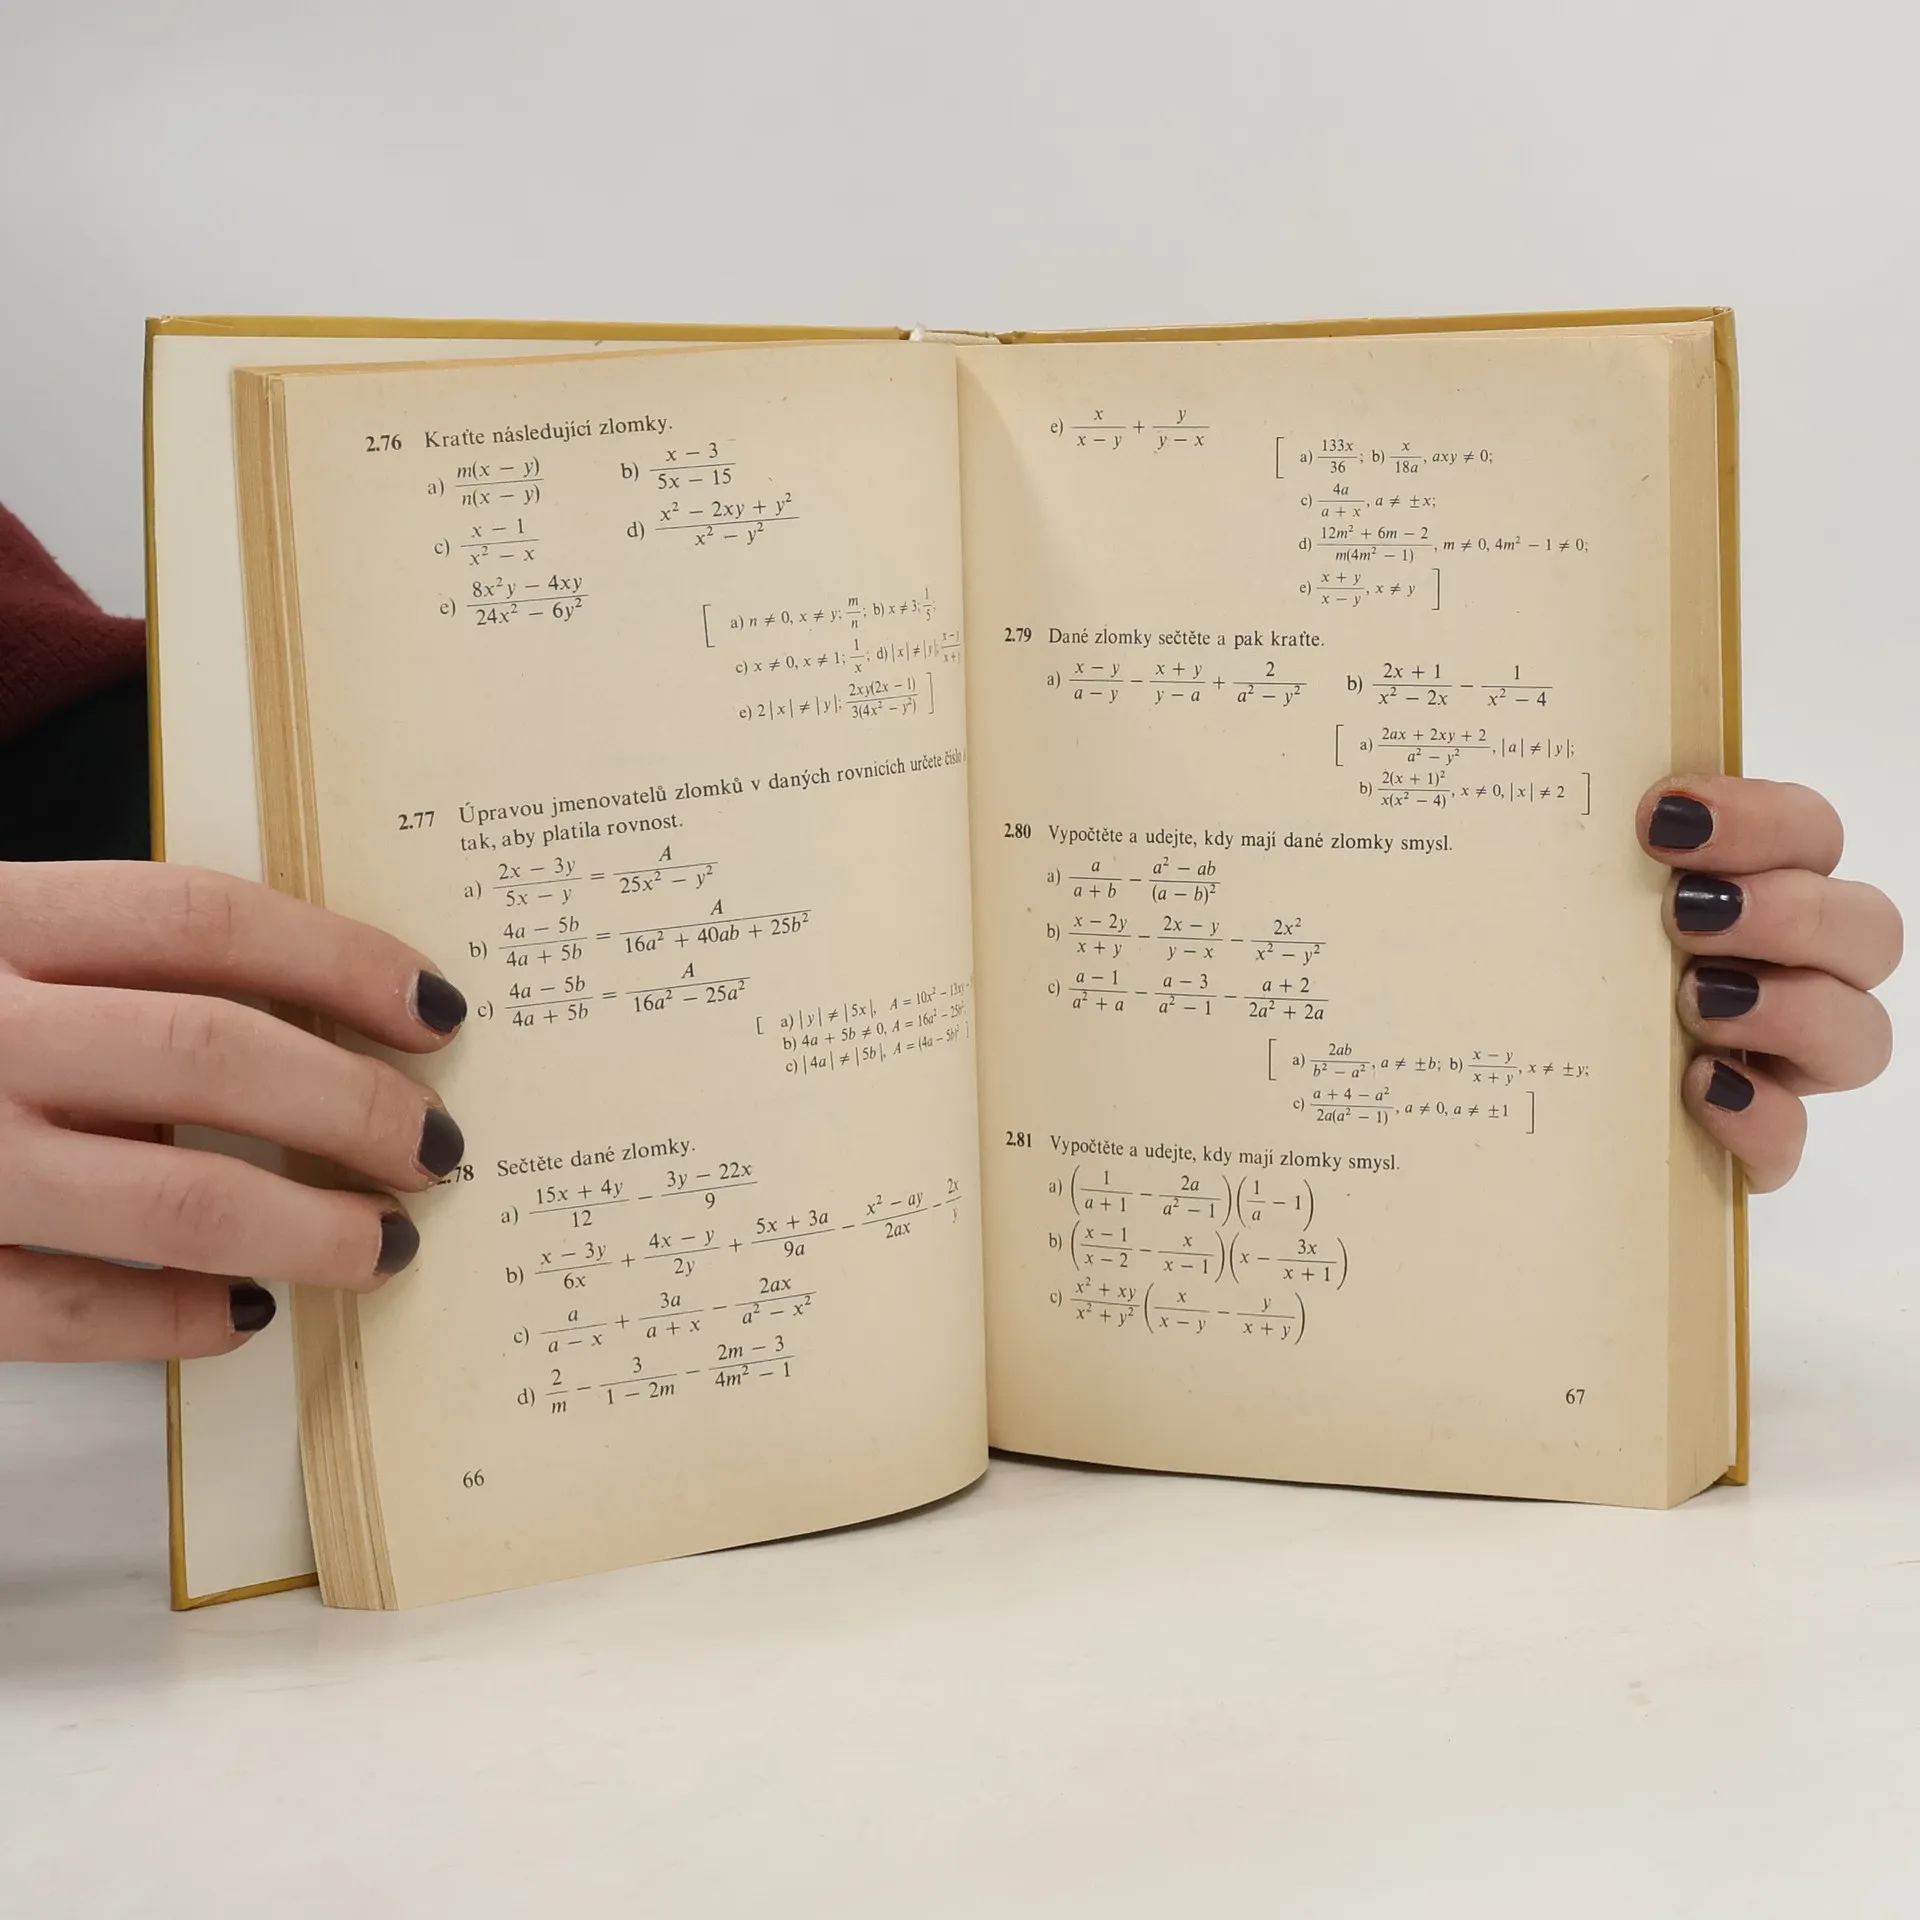 2.76 Kraťte následující zlomky.
a) m(x − y)/n(x − y) b) (x − 3)/(5x − 15)
c) (x − 1)/(x² − x) d) (x² − 2xy + y²)/(x² − y²)
e) (8x²y − 4xy)/(24x² − 6y²)
[ a) n ≠ 0, x ≠ y; m/n; b) x ≠ 3; 1/5;
c) x ≠ 0, x ≠ 1; 1/x; d) |x| ≠ |y|;
e) 2|x| ≠ |y|; 2xy(2x − 1)/3(4x² − y²) ]
2.77 Úpravou jmenovatelů zlomků v daných rovnicích určete číslo
tak, aby platila rovnost.
a) (2x − 3y)/(5x − y) = A/(25x² − y²)
b) (4a − 5b)/(4a + 5b) = A/(16a² + 40ab + 25b²)
c) (4a − 5b)/(4a + 5b) = A/(16a² − 25a²)
[ a) |y| ≠ |5x|, A = 10x² − 13xy
b) 4a + 5b ≠ 0, A = 16a² − 25b²;
c) |4a| ≠ |5b|, A = (4a − 5b)² ]
.78 Sečtěte dané zlomky.
a) (15x + 4y)/12 − (3y − 22x)/9
b) (x − 3y)/6x + (4x − y)/2y + (5x + 3a)/9a − (x² − ay)/2ax − 2x/y
c) a/(a − x) + 3a/(a + x) − 2ax/(a² − x²)
d) 2/m − 3/(1 − 2m) − (2m − 3)/(4m² − 1)
66
e) x/(x − y) + y/(y − x)
[ a) 133x/36; b) x/18a, axy ≠ 0;
c) 4a/(a + x), a ≠ ±x;
d) (12m² + 6m − 2)/m(4m² − 1), m ≠ 0, 4m² − 1 ≠ 0;
e) (x + y)/(x − y), x ≠ y ]
2.79 Dané zlomky sečtěte a pak kraťte.
a) (x − y)/(a − y) − (x + y)/(y − a) + 2/(a² − y²) b) (2x + 1)/(x² − 2x) − 1/(x² − 4)
[ a) (2ax + 2xy + 2)/(a² − y²), |a| ≠ |y|;
b) 2(x + 1)²/x(x² − 4), x ≠ 0, |x| ≠ 2 ]
2.80 Vypočtěte a udejte, kdy mají dané zlomky smysl.
a) a/(a + b) − (a² − ab)/(a − b)²
b) (x − 2y)/(x + y) − (2x − y)/(y − x) − 2x²/(x² − y²)
c) (a − 1)/(a² + a) − (a − 3)/(a² − 1) − (a + 2)/(2a² + 2a)
[ a) 2ab/(b² − a²), a ≠ ±b; b) (x − y)/(x + y), x ≠ ±y;
c) (a + 4 − a²)/2a(a² − 1), a ≠ 0, a ≠ ±1 ]
2.81 Vypočtěte a udejte, kdy mají zlomky smysl.
a) (1/(a + 1) − 2a/(a² − 1))(1/a − 1)
b) ((x − 1)/(x − 2) − x/(x − 1))(x − 3x/(x + 1))
c) (x² + xy)/(x² + y²) (x/(x − y) − y/(x + y))
67